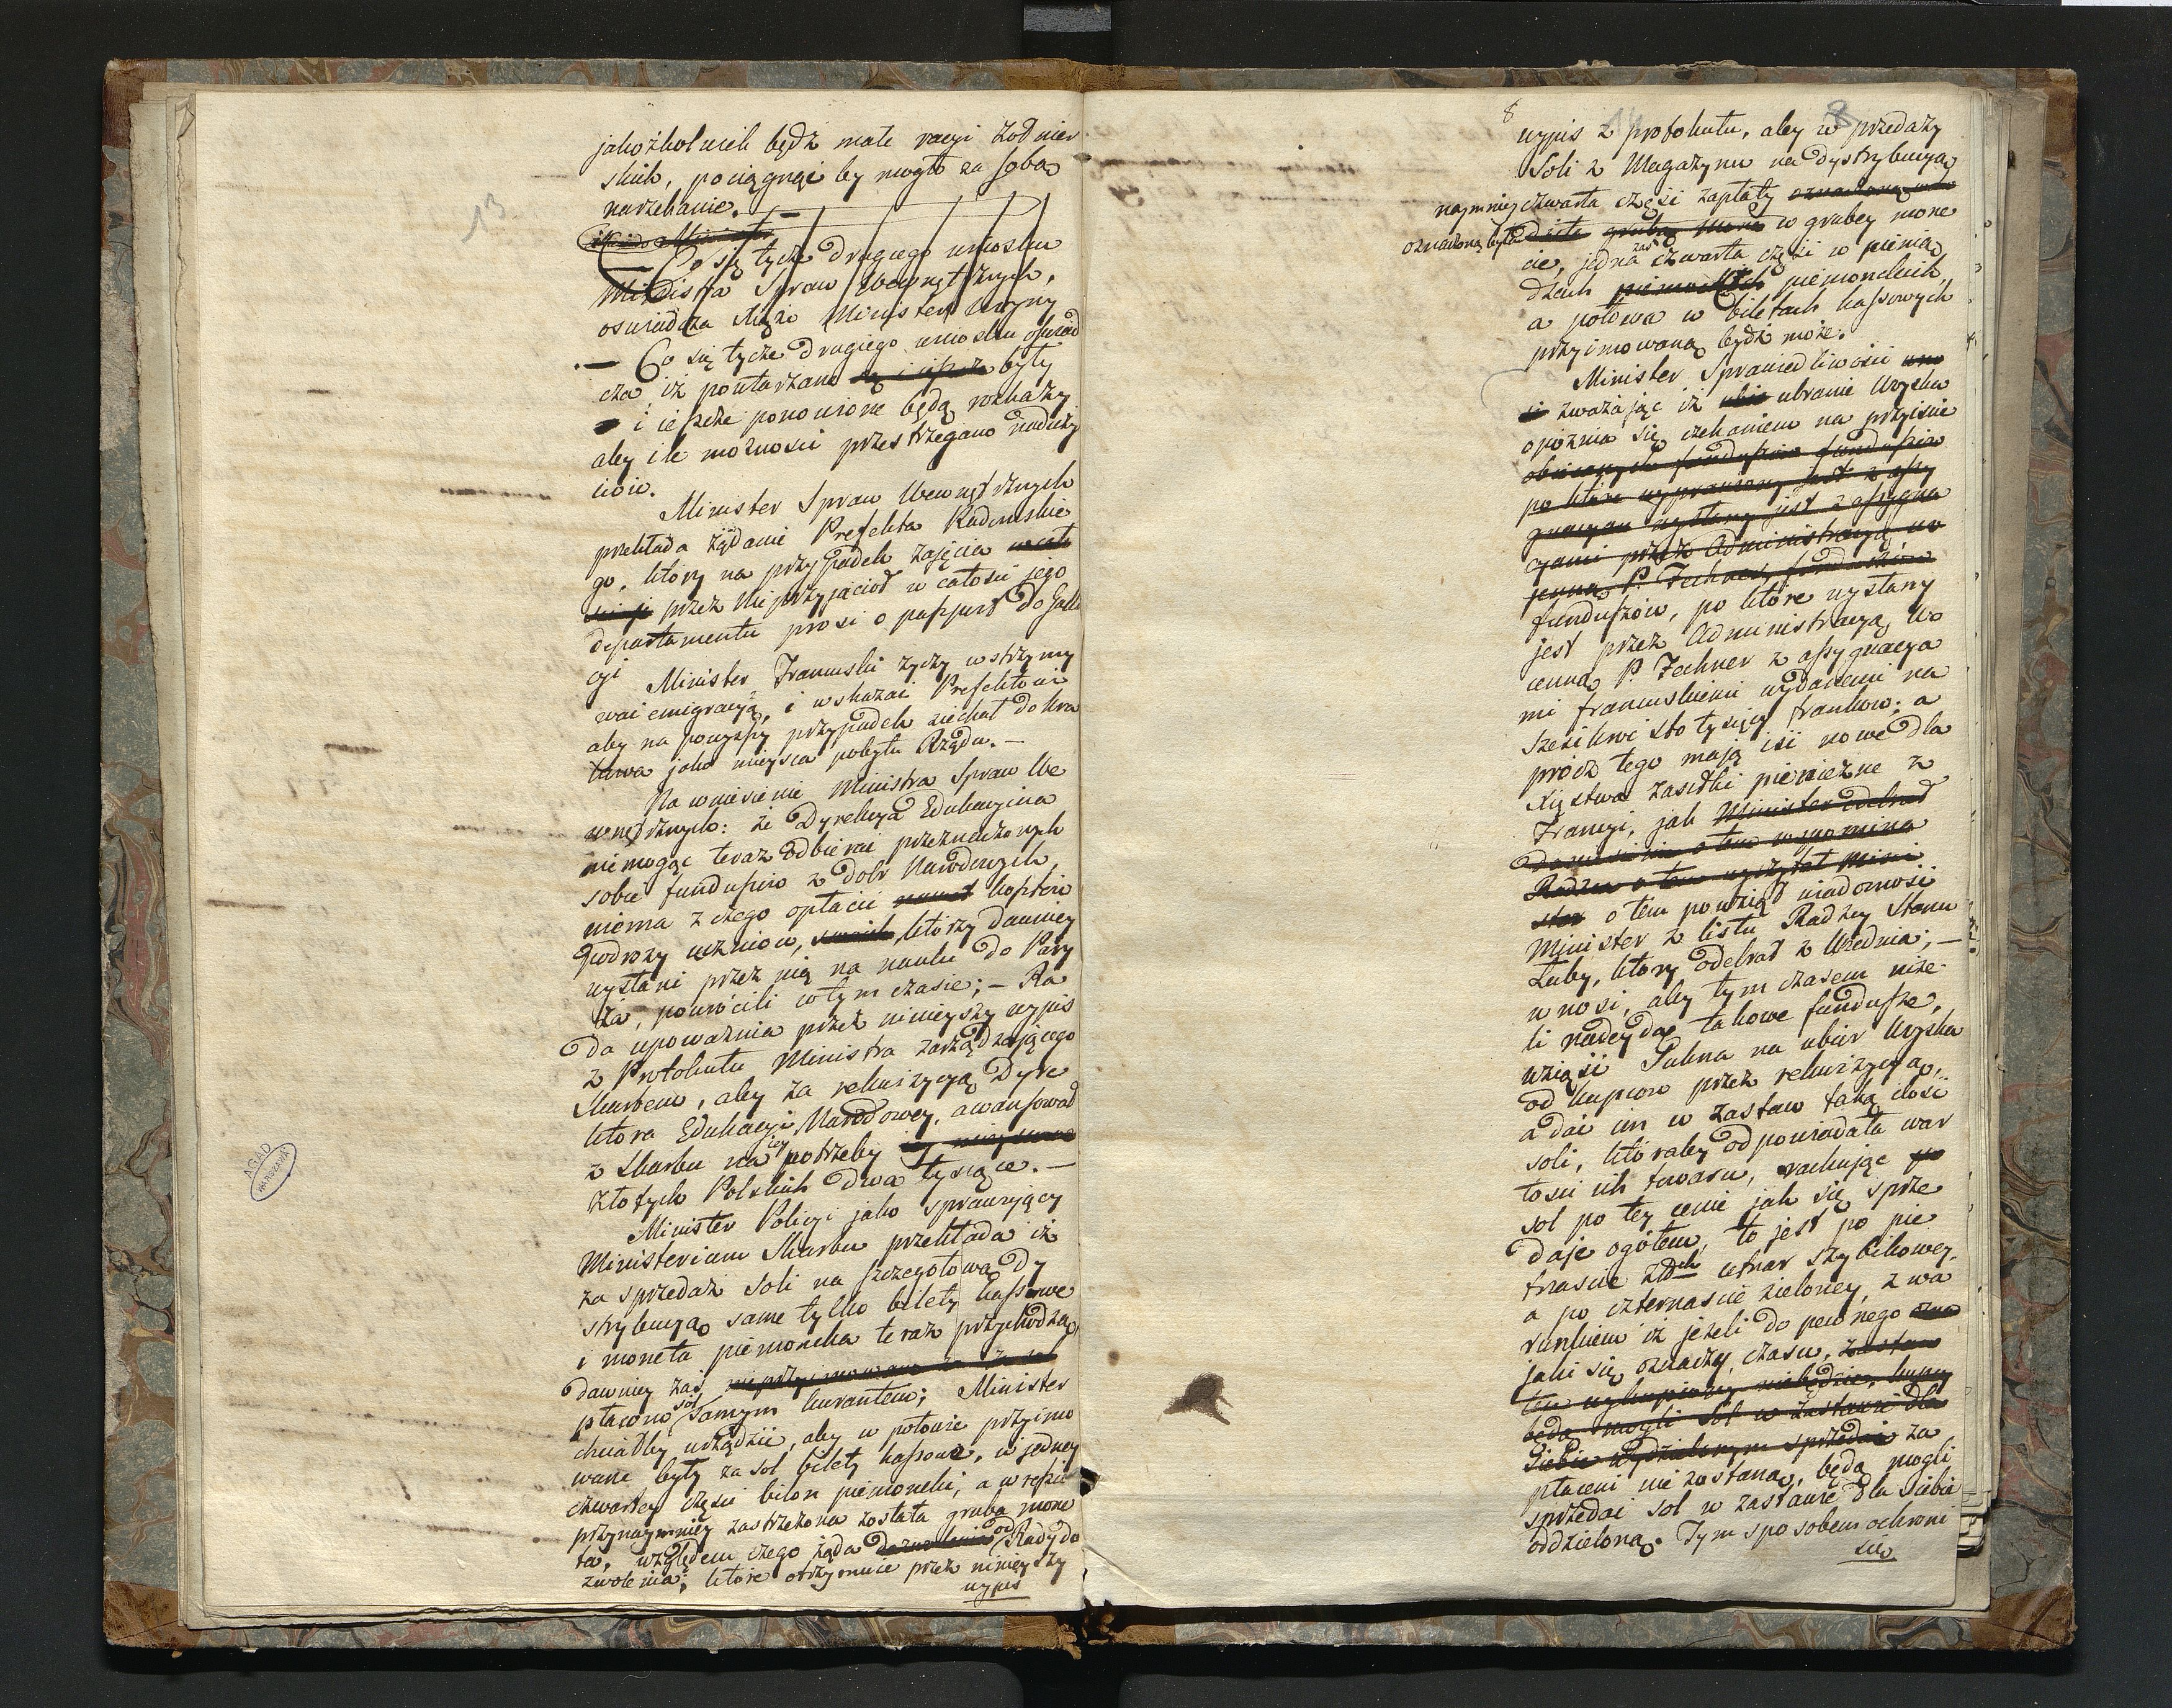 13
jakożkolwiek bądź małe racyi żołnier
skich, pociągnąć by mogło za sobą
narzekanie.
Co się tycze drugiego wniosku
Ministra Spraw Wewnętrznych,
oświadcza Xiąże Minister Woyny
— Co się tycze drugiego wniosku oświad
cza, iż powtarzane były
i ieszcze ponowione będą rozkazy
aby ile możności przestrzegano naduży
ciow.
Minister Spraw Wewnętrznych
przekłada żądanie Prefekta Radomskie
go, ktory na przypadek zajęcia
przez Nieprzyjacioł w całości jego
departamentu prosi o paszport do Galli
cyi
Minister Francuski życzy wstrzymy
wać emigracyą, i wskazać Prefektowi
aby na powyższy przypadek ziechał do Kra
kowa jako mieysca pobytu Rządu. —
Na wniesienie Ministra Spraw We
wnętrznych: że Dyrekcya Edukacyina
niemogąc teraz odbierać przeznaczonych
sobie funduszow z dobr Narodowych,
niema z czego opłacić kosztow
podrozy uczniow, ktorzy dawniey
wysłani przez nią na nauki do Pary
ża, powrócili w tym czasie; — Ra
da upoważnia przez ninieyszy wypis
z Protokułu Ministra zarządzającego
Skarbem, aby za rekwizycyą Dyre
ktora Edukacyi Narodowey, awansował
z Skarbu na jey potrzeby
złotych Polskich dwa tysiące. —
Minister Policyi jako sprawujący
Ministerium Skarbu przekłada iż
za sprzedaż soli na szczegółową dy
strybucyą same tylko bilety kassowe
i moneta piemoncka teraz przychodzą,
dawniey zaś
płacono sol samym kurantem; Minister
chciałby urządzić, aby w połowie przyimo
wane były za sol bilety kassowe, w jedney
czwartey części bilon piemoncki, a w reszcie
przynaymniey zastrzeżona została gruba mone
ta, względem czego żąda od Rady do
zwolenia; ktore otrzymuie przez ninieyszy
wypis
8
8
wypis z protokułu, aby w przedaży
Soli z Magazynu na dystrybucyą
naymniey czwarta część zapłaty
oznaczoną była w grubey mone
cie, jedna zaś czwarta części w pienią
dzach piemonckich,
a połowa w biletach kassowych
przyimowaną bydź może.
Minister Sprawiedliwości
zważając iż ubranie Woyska
opóźnia się czekaniem na przyiście
funduszów, po które wysłany
jest przez Administracyą Wo
jenną P. Zechner z assygnacya
mi francuskiemi wydanemi na
sześćkroć sto tysięcy franków; a
prócz tego mają iść nowe dla
Xięstwa zasiłki pieniężne z
Francyi, jak
o tém powziął wiadomość
Minister z listu Radzcy Stanu
Łuby, ktory odebrał z Wiednia; —
wnosi, aby tym czasem niże
li nadeydą takowe fundusze,
wziąść Sukna na ubiór Woyska
od kupców przez rekwizycyą,
a dać im w zastaw taką ilość
soli, któraby odpowiadała war
tości ich towaru, rachując
sol po tey cenie jak się sprze
daje ogółem, to jest po pię
tnaście złtch cetnar szybikowey,
a po czternaście zieloney, z wa
runkiem iż jeżeli do pewnego
jaki się oznaczy, czasu, za
płaceni nie zostaną, będą mogli
sprzedać sol w zastawie dla siebie
oddzieloną. Tym sposobem ochroni
się
AGAD
WARSZAWA